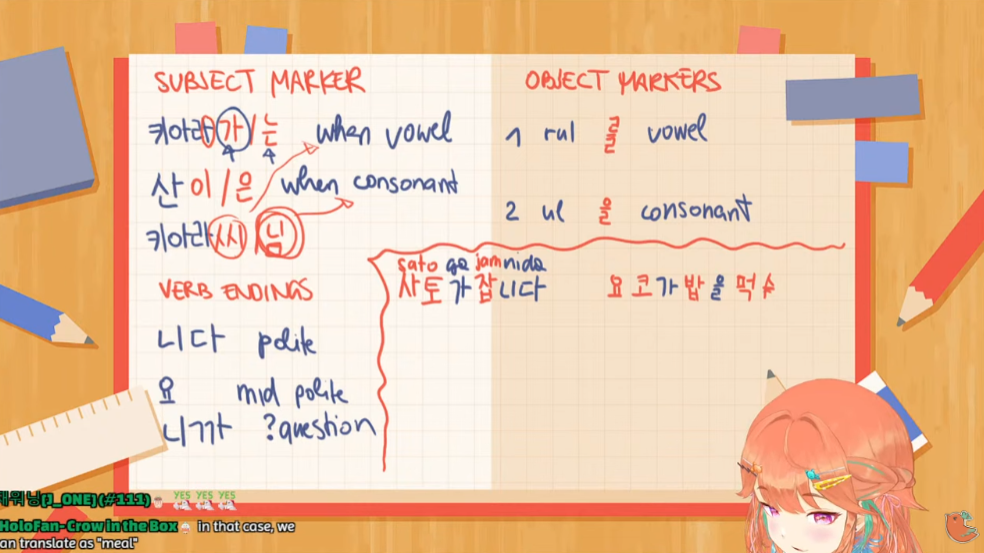 SUBJECT MARKER
키아라가/는 when vowel
산이/은 when consonant
키아라씨 님
VERB ENDINGS
니다 polite
요 mid polite
니까 ?question
OBJECT MARKERS
1 rul 를 vowel
2 ul 을 consonant
sato ga jamnida
사토가 잡니다
요코가 밥을 먹스
[J_ONE](#111) YES YES YES
HoloFan-Crow in the Box in that case, we
an translate as "meal"